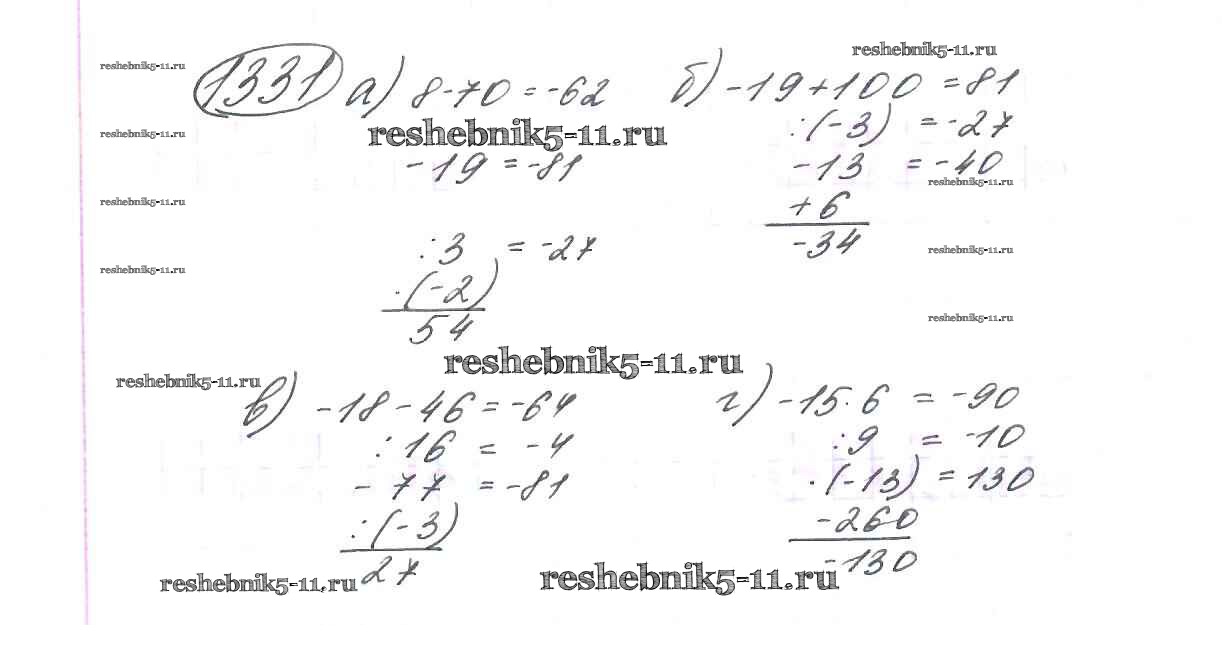 reshebnik5-11.ru
reshebnik5-11.ru
1331 а) 8-70=-62 б) -19+100=81
reshebnik5-11.ru
reshebnik5-11.ru
:(-3) =-27
-19=-81
-13 =-40
reshebnik5-11.ru
reshebnik5-11.ru
+6
-34
:3 =-27
reshebnik5-11.ru
reshebnik5-11.ru
·(-2)
54
reshebnik5-11.ru
reshebnik5-11.ru
reshebnik5-11.ru
в) -18-46=-64 г) -15·6 =-90
:16 = -4 :9 = -10
-77 =-81 ·(-13)=130
:(-3) -260
27 -130
reshebnik5-11.ru
reshebnik5-11.ru